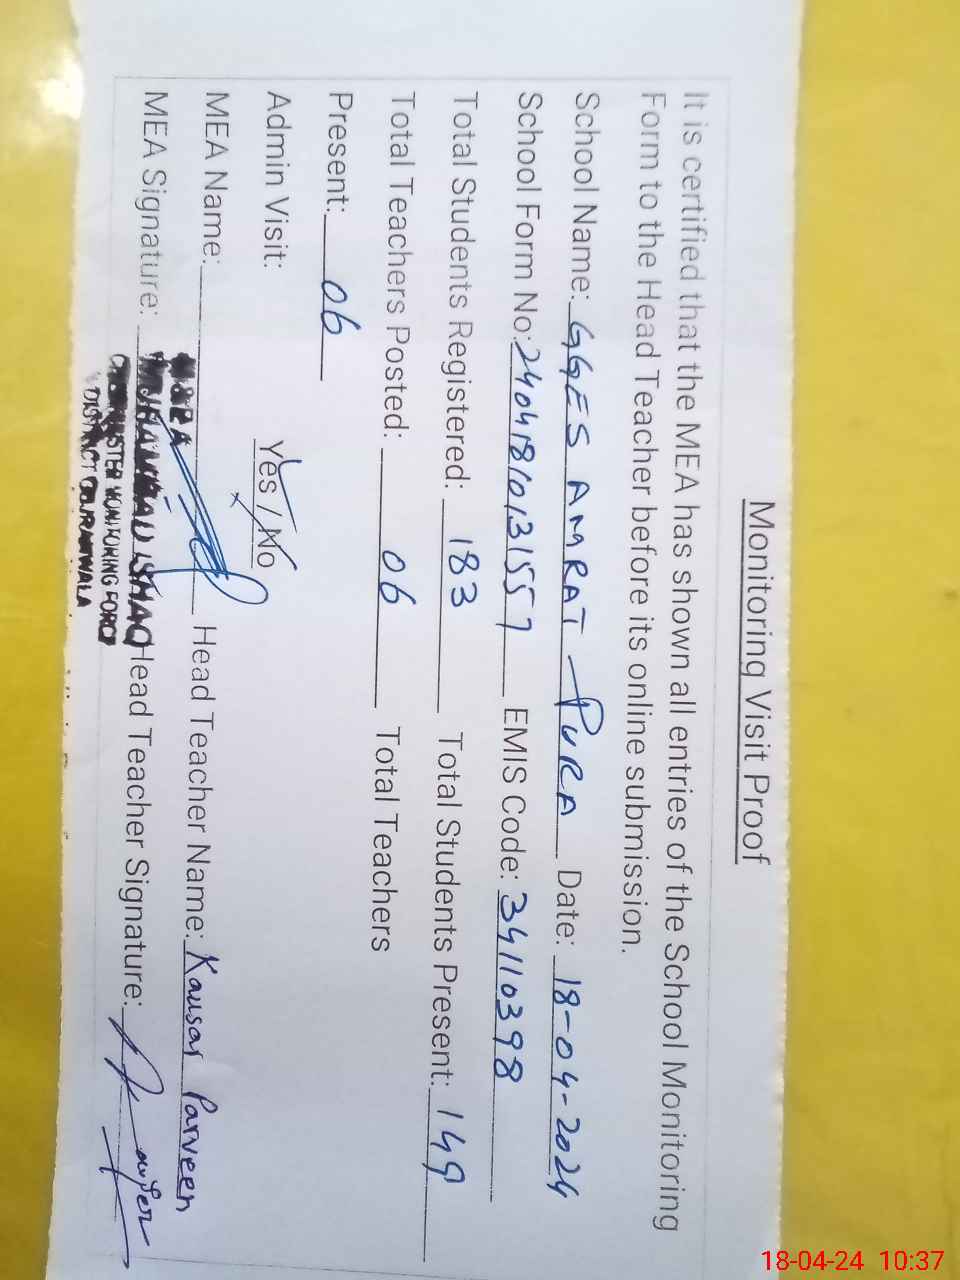 Monitoring Visit Proof
It is certified that the MEA has shown all entries of the School Monitoring
Form to the Head Teacher before its online submission.
School Name: GGES AMRAT PURA Date: 18-04-2024
School Form No: EMIS Code: 34110398
Total Students Registered: 183 Total Students Present: 149
Total Teachers Posted: 06 Total Teachers
Present: 06
Admin Visit: Yes / No
MEA Name: Head Teacher Name: Kausar Parveen
MEA Signature: Head Teacher Signature:
MONITORING FORCE
DISTRICT GUJRANWALA
18-04-24 10:37